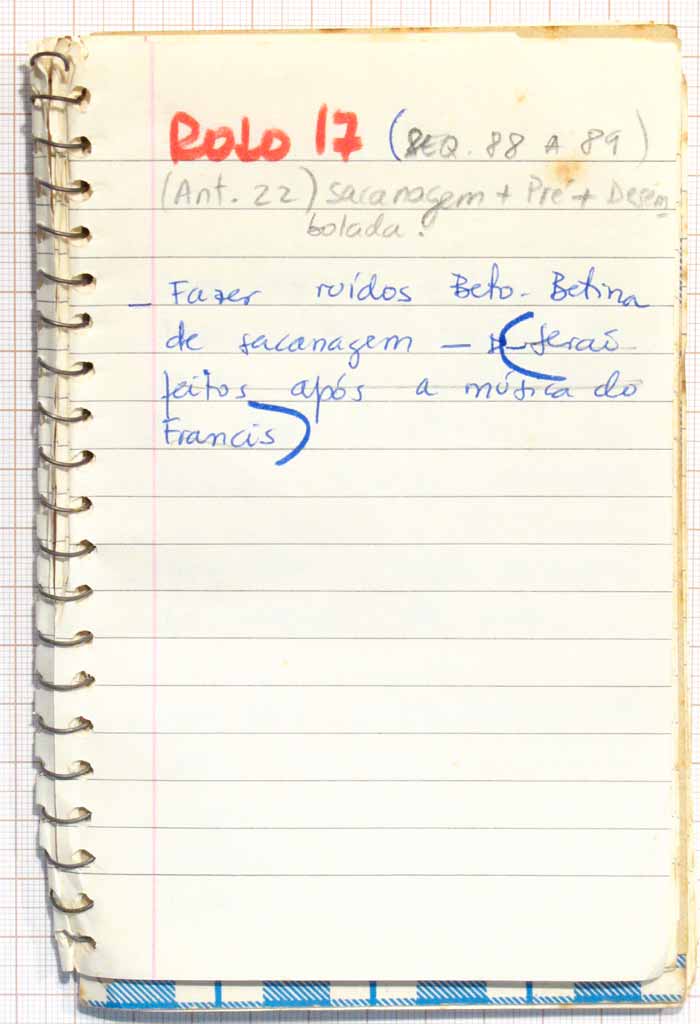 ROLO 17 (SEQ. 88 A 89)
(Ant. 22) sacanagem + Pré + Desem
bolada.
- Fazer ruídos Beto-Betina
de sacanagem — (serão
feitos após a música do
Francis)